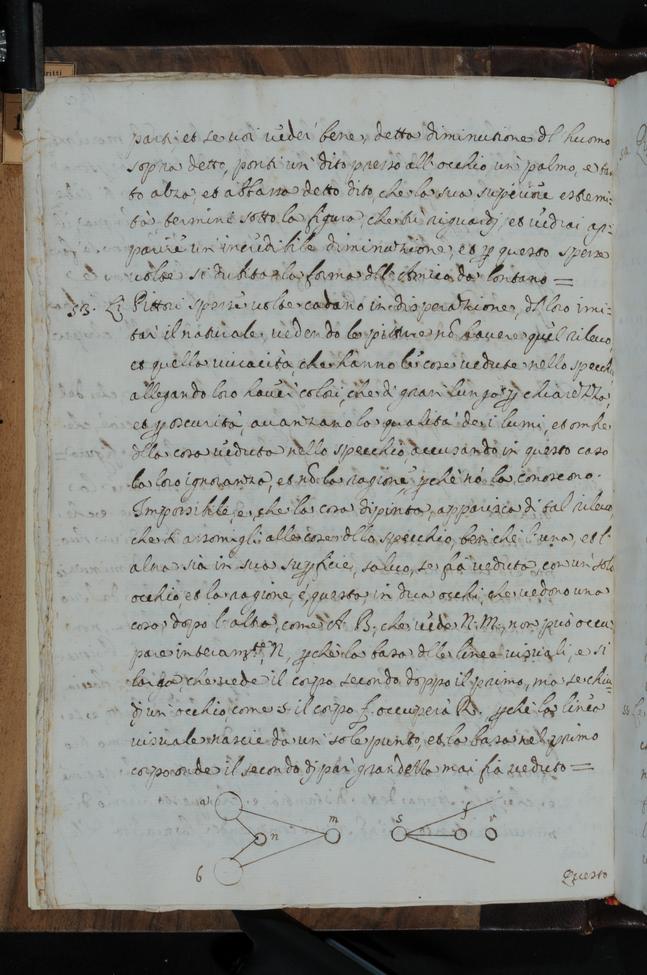 parti et se voi veder bene, detta diminutione dl huomo
sopra detto, ponti un dito presso all occhio un palmo, e tan
to alza, et abbassa detto dito, che la sua superiore estremi:
tà termini sotto la figura, che tu riguardj, et vedrai ap:
parire un incredibile diminutione, et p questo spesse
volte si dubita la forma dll da lontano =
53. Li Pittori spesse volte cadano in disperatione, dl loro imi:
tar il naturale, vedendo le pitture nō havere quel rilevo,
et quella vivacità che hanno le cose vedute nello specch
allegando loro haver colori, che di gran lunga p chiarezza,
et p oscurità, avanzano la qualità de i lumi, et ombre
dlla cosa veduta nello specchio, accusando in questo caso
la loro ignoranza, et nō la ragione, pche nō la conoscono.
Impossibile, e, che la cosa dipinta, apparisca di tal rilevo
che s assomigli alle cose dllo specchio, benche l'una, et l'
altra sia in sua supficie, salvo, se fia veduta, con un sol
occhio, et la ragione, è, questa, in dua occhi, che vedono una
cosa dopo l'altra, come A. B, che vede N. M, non può occu
pare interamte, N, pche la basa dlle linee visuali, e si
larga, che vede il corpo secondo doppo il primo, ma se chiu
di un occhio, come S il corpo f. occuperà R. pche la linea
visuale nascie da un solo punto, et la basa nel primo
corpo onde il secondo dj pari grandezza mai fia veduto =
a n m s f r
6
Questo